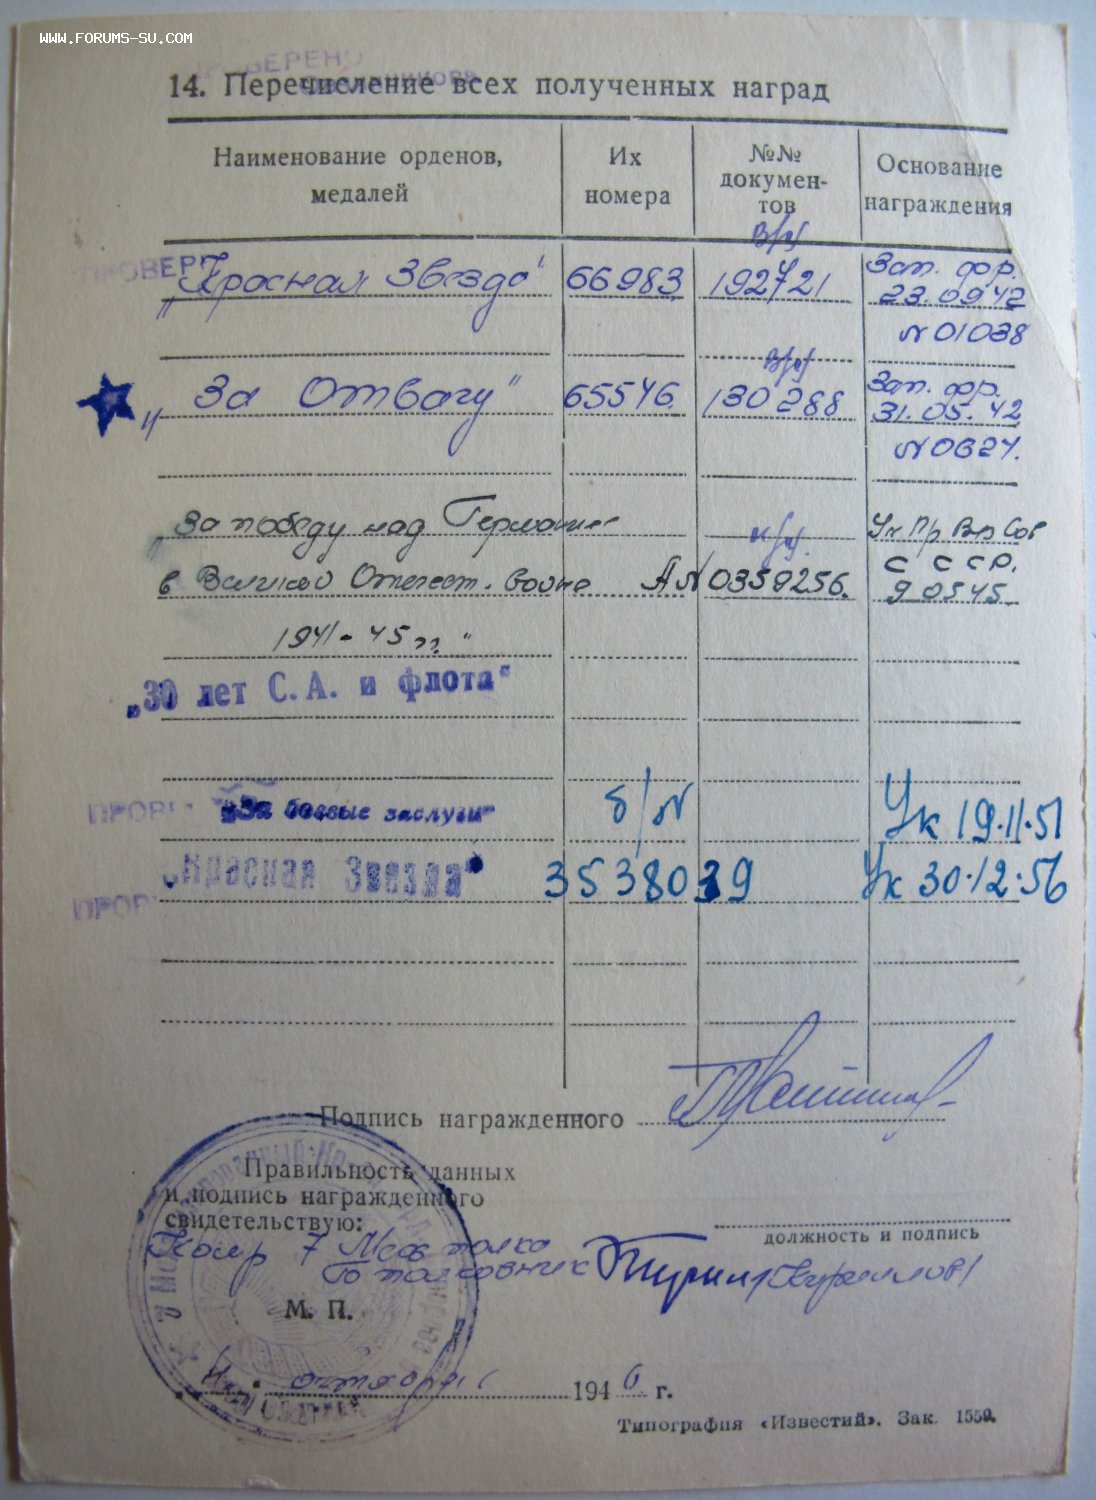 WWW.FORUMS-SU.COM
14. Перечисление всех полученных наград
Наименование орденов, медалей
Их номера
№№ докумен-тов
Основание награждения
в/к
ПРОВЕР
„Красная Звезда“ 66983 192721 Зап. фр. 23.09.42
N 01038
„За Отвагу“ 65546. 130288 Зап. фр. 31.05.42
N 0627.
За победу над Германией Ук Пр Вр Сов
в Великой Отечест. войне А N 0359256. С С С Р. 9 05 45
1941-45 гг."
„30 лет С. А. и флота“
ПРОВЕ „За боевые заслуги“ б/N Ук 19.11.51
„Красная Звезда“ 3538039 Ук 30.12.56
ПРОВ
Подпись награжденного
Правильность данных
и подпись награжденного
свидетельствую:
должность и подпись
7 Мех полка
Подполковник (Кириллов)
М. П.
октября 1946 г.
Типография «Известий». Зак. 1559.